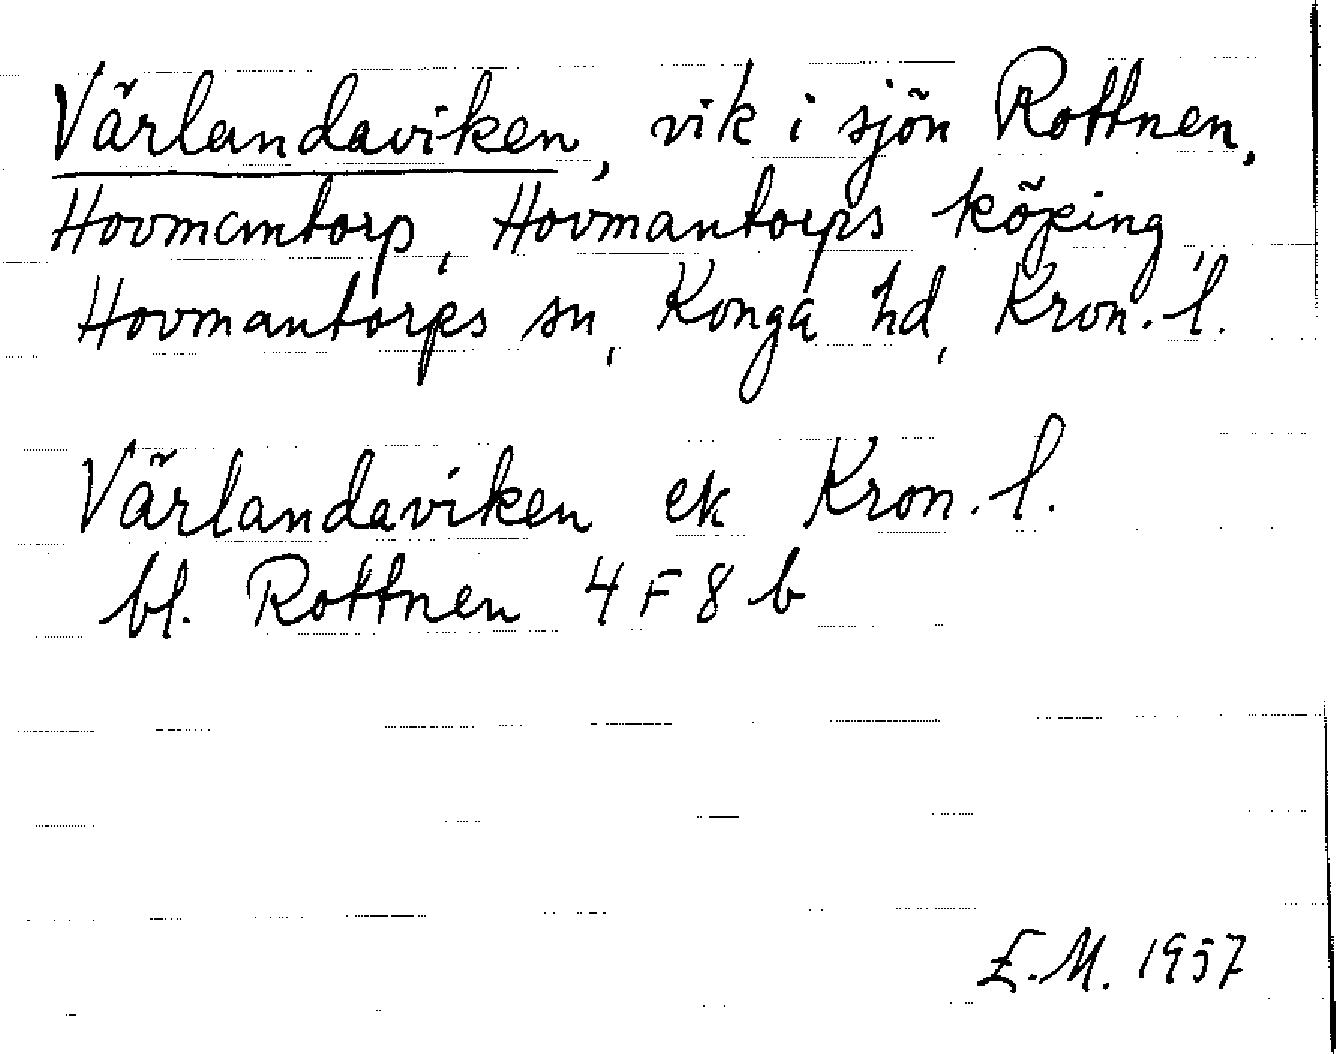 Värlandaviken, vik i sjön Rottnen,
Hovmantorp, Hovmantorps köping,
Hovmantorps sn, Konga hd, Kron. l.
Värlandaviken ek Kron. l.
bl. Rottnen 4 F 8 b
E.M. 1957